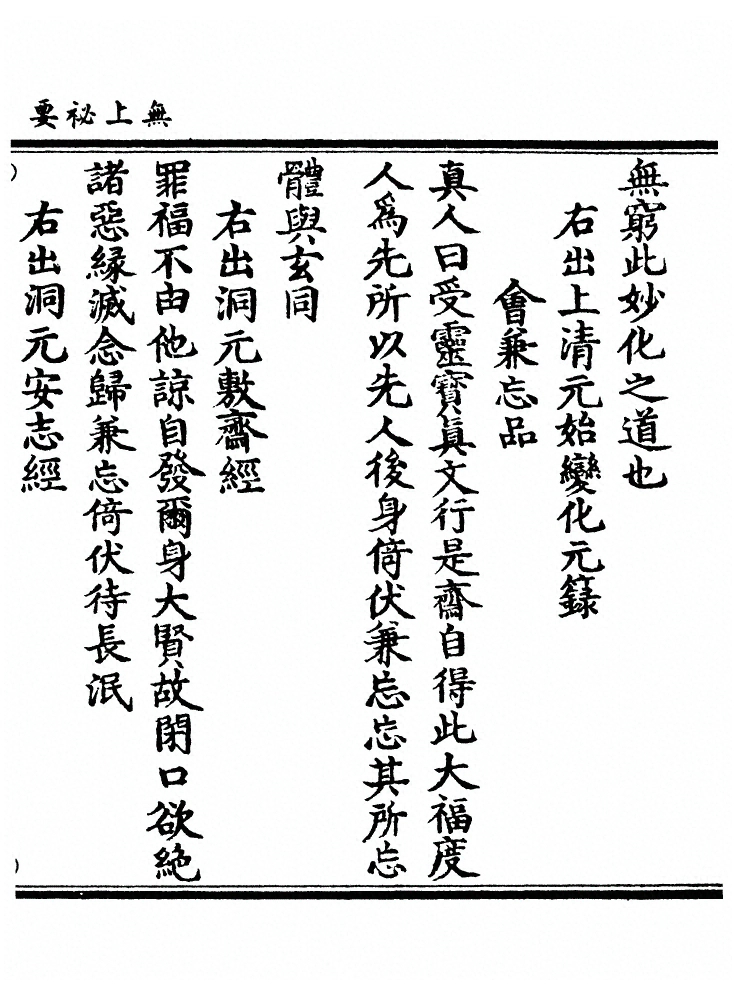 無上祕要
無窮此妙化之道也
右出上清元始變化元籙
會兼忘品
真人曰受靈寶眞文行是齋自得此大福度
人為先所以先人後身倚伏兼忘忘其所忘
體與玄同
右出洞元敷齋經
罪福不由他諒自發爾身大賢故閉口欲絶
諸惡緣滅念歸兼忘倚伏待長泯
右出洞元安志經